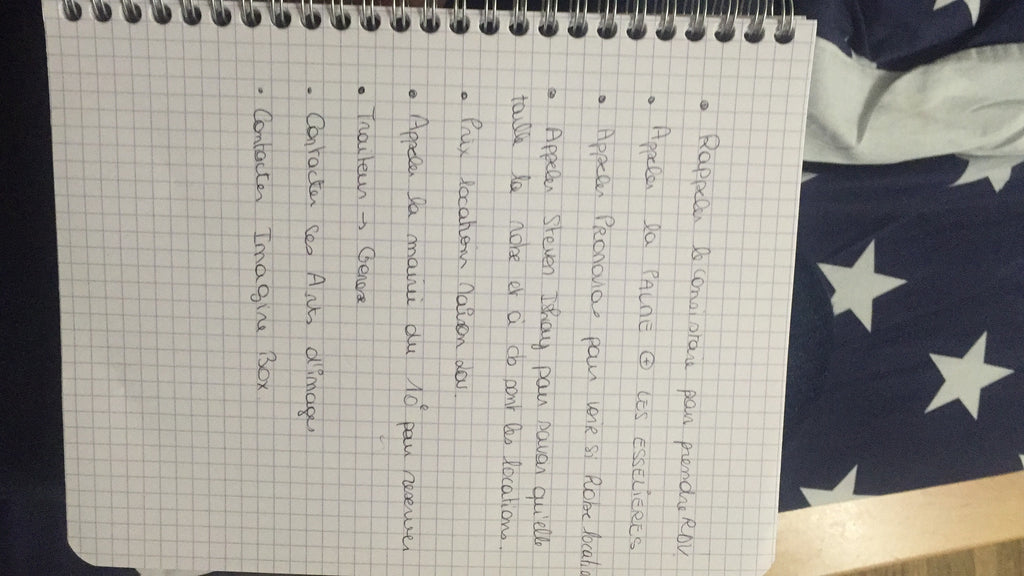 • Rappeler le consistoire pour prendre RDV
• Appeler la PALME ⊕ LES ESSELIERES
• Appeler Pronovias pour voir si Robe location
• Appeler Steven Ishay pour savoir quelle
taille la robe et à cb sont les locations.
• Prix locations Maison
• Appeler la mairie du 10e pour reserver
• Traiteur →
• Contacter les Arts d'images
• Contacter Imagine Box